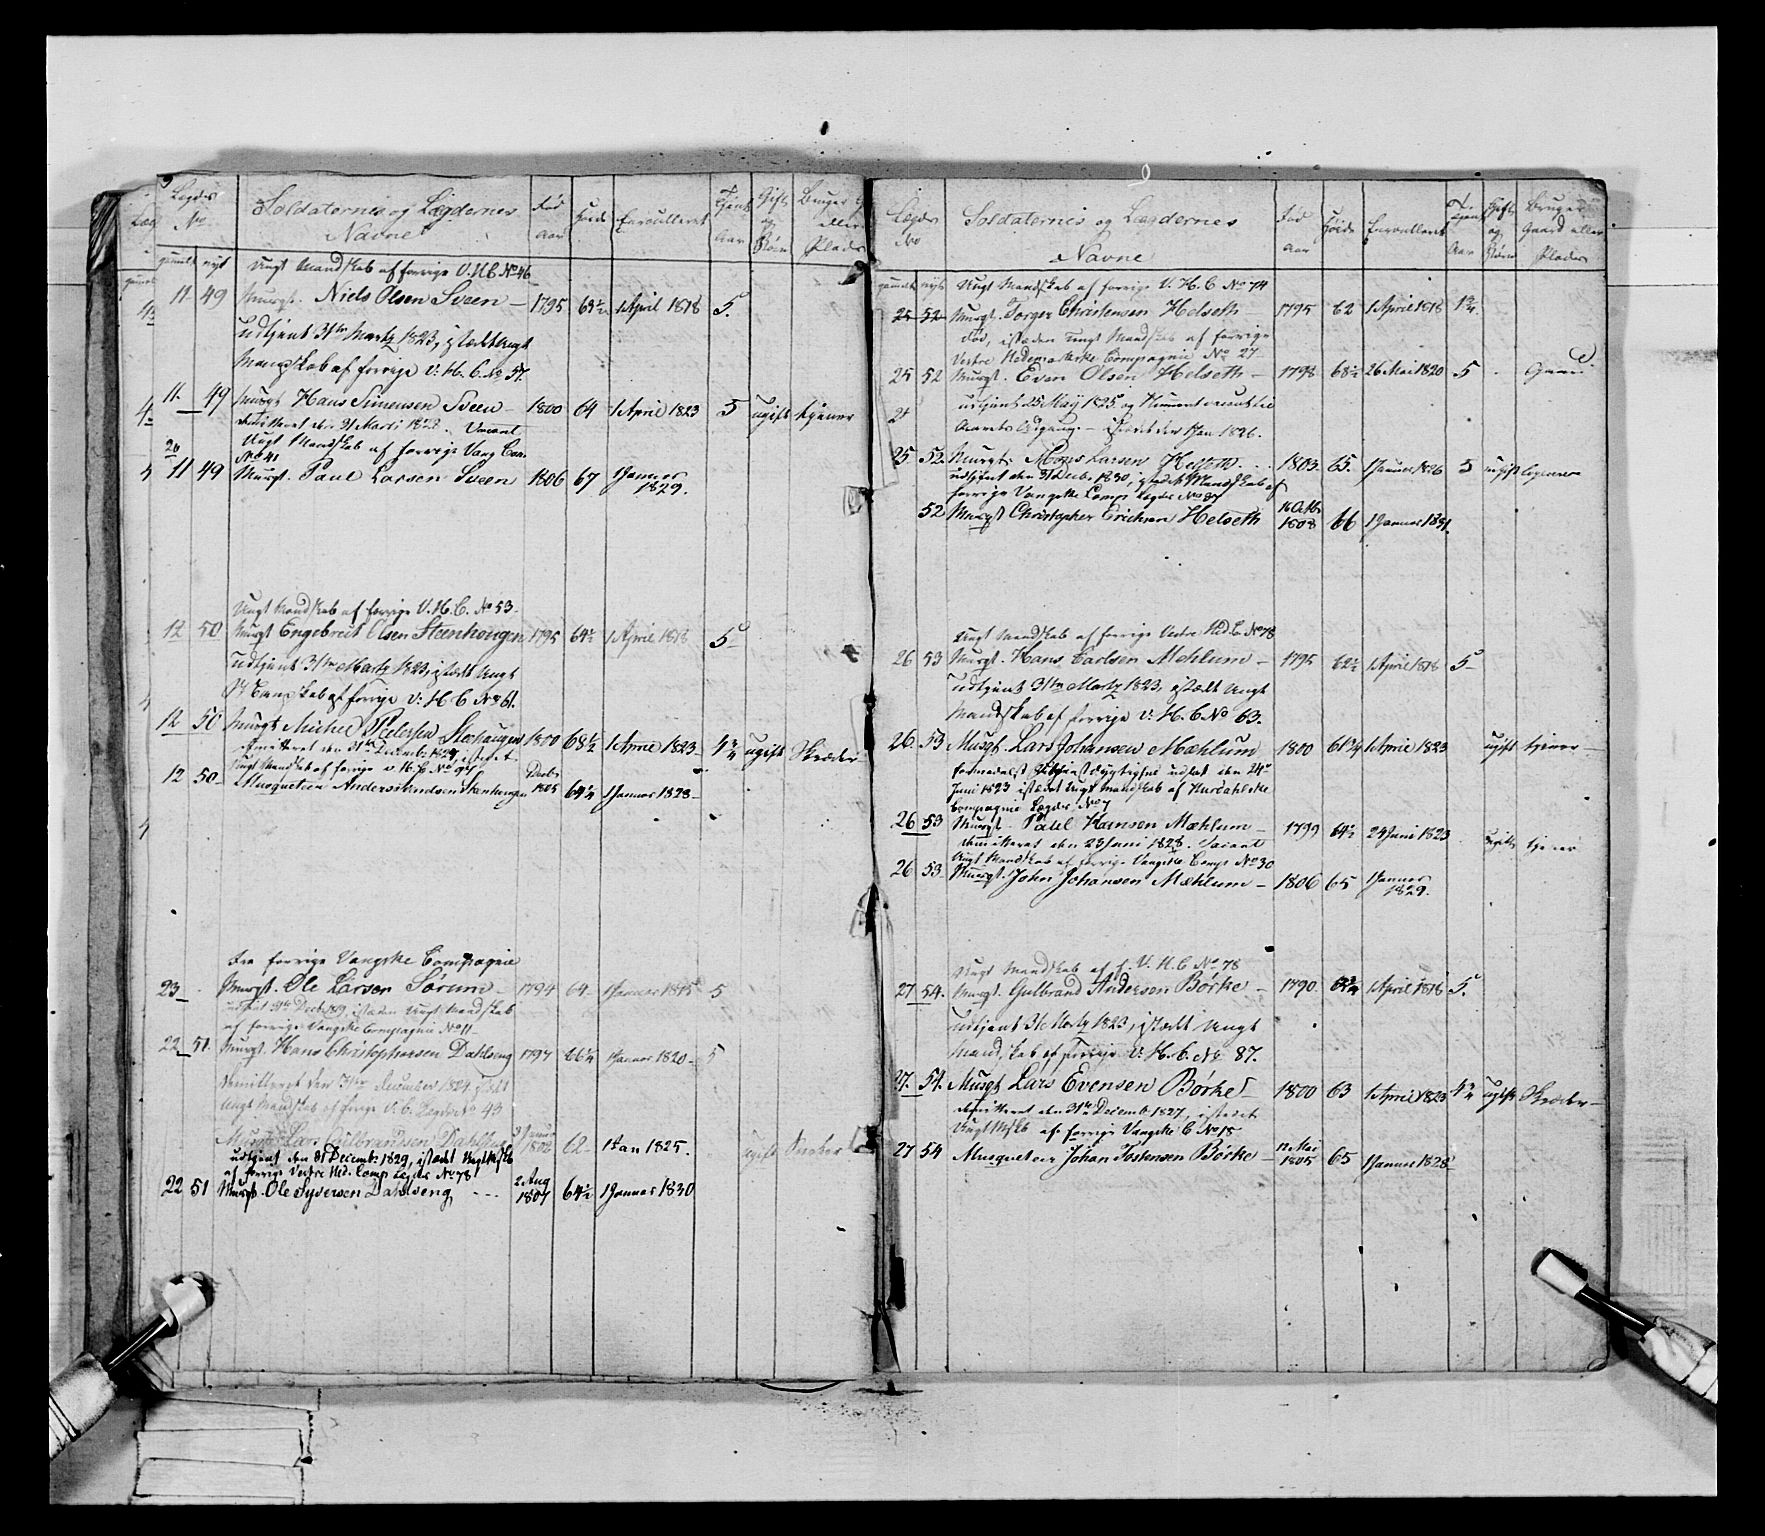 Legds No
Soldaternes og Lægdernes Navne
Fød Aar
Høide
Enroulleret
Tjent Aar
Gift og Børn
Bruger eller Plads
gamelt nyt
Ungt Mandskab af forrige V. H. C. No 46
11 49 Musqt. Niels Olsen Sveen – 1795 63½ 1 April 1818 5.
Udtjent 31te Martz 1823, istædet Ungt
Mandskab af forrige V. H. C. No 57.
11. 49 Musqt Hans Simensen Sveen – 1800 64 1 April 1823 5 ugift tjener
demitteret den 31 Marti 1828. Vacant
Ungt Mandskab af forrige Vang Com.
No 41
11 49 Musqt. Paul Larsen Sveen 1806 67 1 Januar 1829.
Ungt Mandskab af forrige V. H. C. No 53.
12 50 Musqt Engebret Olsen Steenhougen 1795 64½ 1 April 1818 5
Udtjent 31te Martz 1823, istædt Ungt
Mandskab af forrige V. H. C No 61.
12 50 Musqt Michel Pedersen Steehaugen 1800 68½ 1 April 1823 – 4¾ ugift Skræder
demitteret den 31te Decembr 1827, istedet
Ungt Mandskab af forrige V. H. C. No 97
12 50 – Musqueteer Anders Knudsen Stenhaugen Decbr 1805 64¼ 1 Januar 1828 –
Fra forrige Vangske Compagnie
23 – Musqt. Ole Larsen Sørum – 1794 64 – 1 Januar 1815 5
udtjent 31te Decbr 1819, isteden Ungt Mandskab
af forrige Vangske Compagnie No 11 –
22 51 Musqt. Hans Christophersen Dahlseng 1797 66¼ 1 Januar 1820 – 5
demitteret den 31te December 1824, istædt
Ungt Mandskab af forrige V. C. Lægds No 43
Musqt Lars Gulbrandsen Dahlseng 1802 62 – 1 Jan 1825. ugift Sneker
udtjent den 31 Decembr 1829, istædet Ungt Mskb
af forrige Vestre Hed. Comp Legds No 78
22 51 Musqt. Ole Syversen Dahlseng – – – 2 Aug 1807 64½ 1 Januar 1830
Legds No
Soldaternes og Lægdernes
Navne
Fød Aar
Høide
Enroulleret
Tjent Aar
Gift og Børn
Bruger Gaard eller Plads
gamelt nyt
Ungt Mandskab af forrige V. H. C No 74
25 52 – Musqt. Torger Christensen Helseth – 1795 62 1 April 1818 1¾
død, isteden Ungt Mandskab af forrige
Vestre Hedemarkske Compagnie No 27 –
25 52 Musqt. Even Olsen Helseth – 1798 68½ 26 Mai 1820 5 Gaard
udtjent 25 Maij 1825 og Numeret vacant til
Aarets Udgang. – Istedet den 1 Jan 1826.
25 52. Musqt. Hans Larsen Helseth. 1803. 65. 1 Januar 1826 5 ugift
udtjent den 31 Decbr 1830, istedt Mandskab af
forrige Vangske Comp Legds No 87
52 Musqt Christopher Erichsen Helseth 16 Octbr 1808 66 1 Januar 1831.
Ungt Mandskab af forrige Vestre Hed. C. No 78
26 53 Musqt. Hans Carlsen Mehlum – 1795 62½ 1 April 1818 5 –
Udtjent 31te Martz 1823, istædt Ungt
Mandskab af forrige V. H. C No 63.
26. 53 Musqt. Lars Johansen Mæhlum 1800 61¾ 1 April 1823 ugift tjener –
formedelst Utjenstdygtighed udsat den 24de
Juni 1823 istædet Ungt Mandskab af Hurdahlske
Compagnie Lægds No 7
26 53 Musqt. Paul Hansen Mæhlum – 1799 64½ 24 Juni 1823 ugift tjener
demitteret den 23 Juni 1828. Vacant
Ungt Mandskab af forrige Vangske Comp No 30
26 53 – Musqt. John Johansen Mæhlum – 1806 65 1 Januar 1829.
Ungt Mandskab af f. V. H. C No 78
27 54. Musqt. Gulbrand Andersen Børke – 1790 1 April 1818 5.
Udtjent 31 Martz 1823, istædt Ungt
Mandskab af forrige V. H. C. No 87.
27. 54. Musqt Lars Evensen Børke – 1800 63 1 April 1823 4¾ ugift Skræder –
demitteret den 31te Decemb. 1827, istedet
Ungt Mskb af forrige Vangske C No 18
27 54 Musqueteer Johan Tostensen Børke – 12 Mai 1805 65 1 Januar 1828